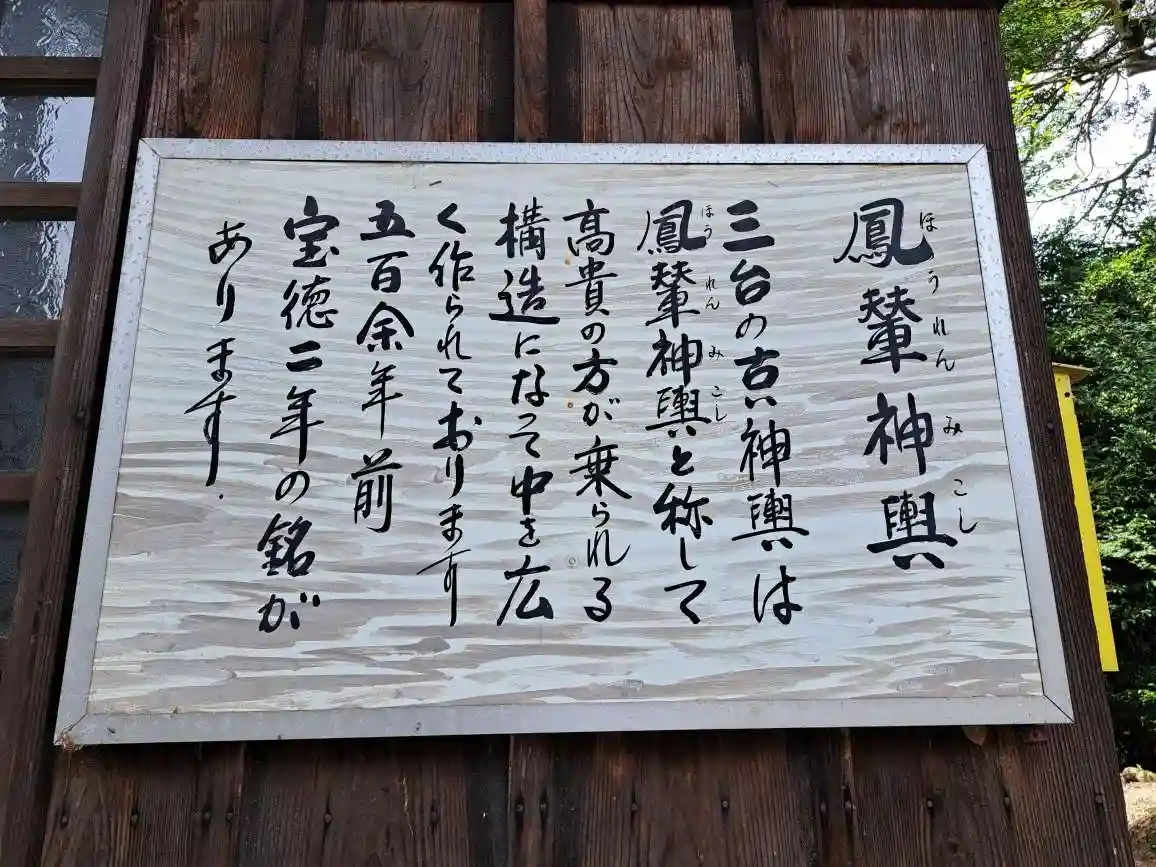 鳳輦神輿
ほうれんみこし
三台の古神輿は
鳳輦神輿と称して
ほうれんみこし
高貴の方が乗られる
構造になって中を広
く作られております
五百余年前
宝徳二年の銘が
あります.